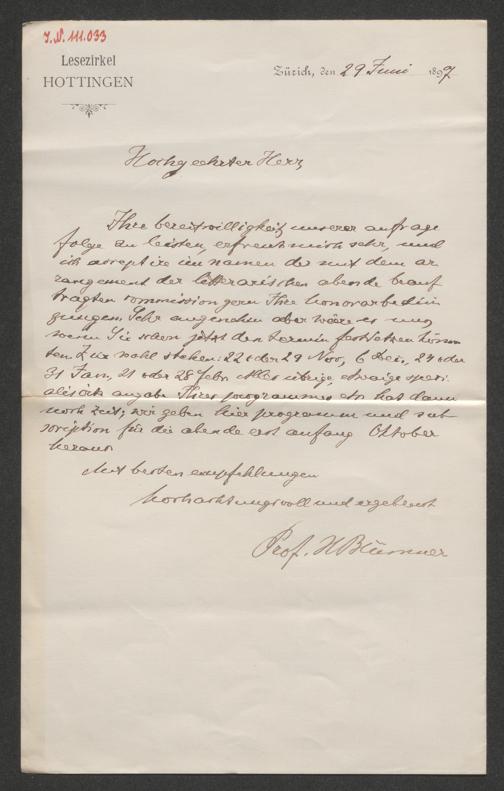 J.N. 111.033
Lesezirkel
HOTTINGEN
Zürich, den 29 Juni 1897
Hochgeehrter Herr,
Ihre bereitwilligkeit, unserer anfrage
folge zu leisten, erfreut mich sehr, und
ich acceptire im namen der mit dem ar
rangement der litterarischen abende beauf
tragten commission gern Ihre honorarbedin
gungen. Sehr angenehm aber wäre es uns,
wenn Sie schon jetzt den termin festsetzen könn
ten. Zur wahl stehen: 22 oder 29 Nov., 6 Dec., 24 oder
31 Jan., 21 oder 28 Febr. Alles übrige, etwaige speci
alistische angabe Ihres programmes etc. hat dann
noch zeit; wir geben hier programm und sub
scription für die abende erst anfang Oktober
heraus.
Mit besten empfehlungen
hochachtungsvoll und ergebenst
Prof. H Blümner